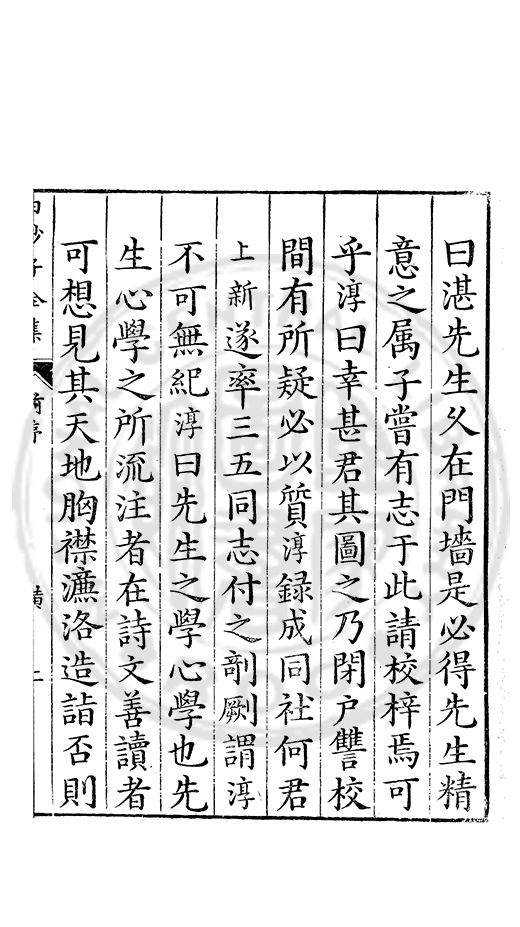 曰湛先生久在門墻是必得先生精
意之属子嘗有志于此請校梓焉可
乎淳曰幸甚君其圖之乃閉戶讐校
間有所疑必以質淳録成同社何君
上新遂率三五同志付之剞劂謂淳
不可無紀淳曰先生之學心學也先
生心學之所流注者在詩文善讀者
可想見其天地胸襟濂洛造詣否則
沙子全集